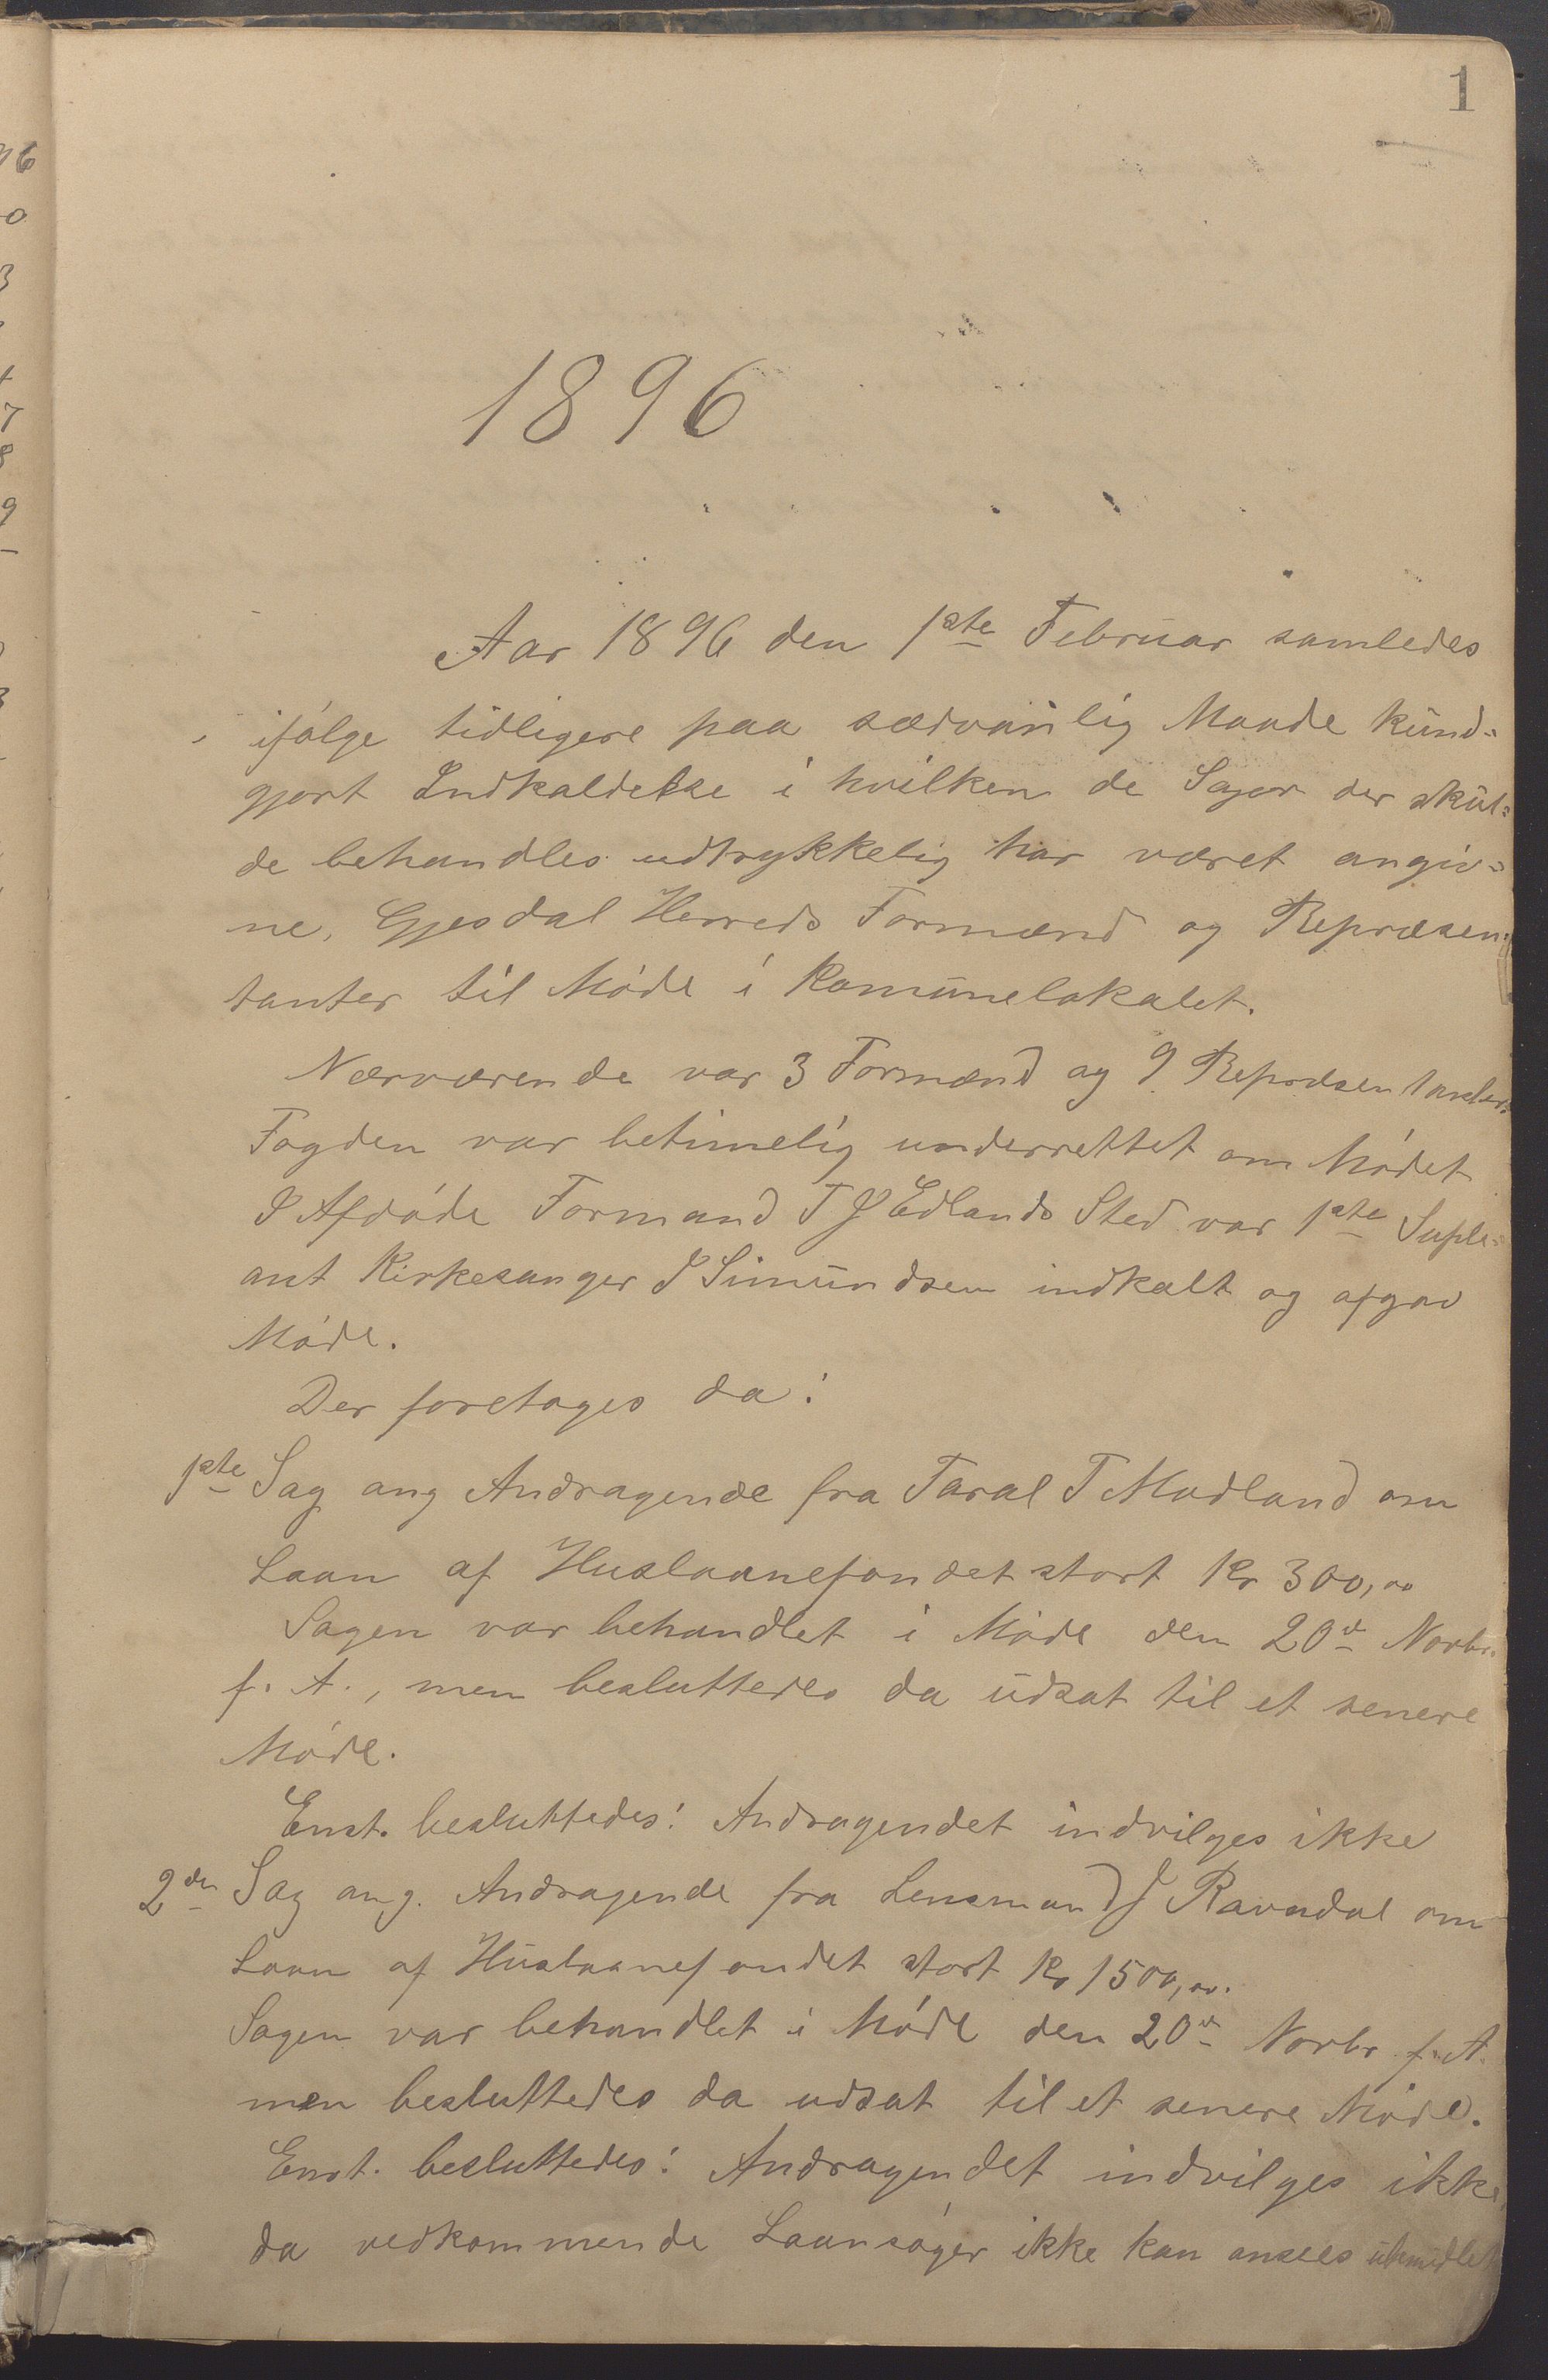 1
1896
Aar 1896 den 1ste Februar samledes
ifølge tidligere paa sædvanlig Maade kund-
gjort Indkaldelse i hvilken de Sager der skul-
de behandles udtrykkelig har været angiv-
ne, Gjesdal Herreds Formænd og Repræsen-
tanter til Møde i Komunelokalet.
Nærværende var 3 Formænd og 9 Repræsentanter.
Fogden var betimelig underrettet om Mødet
I Afdøde Formand T J Edlands Sted var 1ste Suple-
ant Kirkesanger J Simundsen indkalt og afgav
Møde.
Der foretoges da:
1ste Sag ang Andragende fra Taral T Madland om
Laan af Huslaanefondet stort Kr 300,00
Sagen var behandlet i Møde den 20de Novbr.
f. A., men besluttedes da udsat til et senere
Møde.
Enst. besluttedes: Andragendet indvilges ikke
2den Sag ang. Andragende fra Lensmand J Ravndal om
Laan af Huslaanefondet stort Kr 1500,00.
Sagen var behandlet i Møde den 20de Novbr f. A.
men besluttedes da udsat til et senere Møde.
Enst. besluttedes: Andragendet indvilges ikke,
da vedkommende Laansøger ikke kan ansees ubemidlet